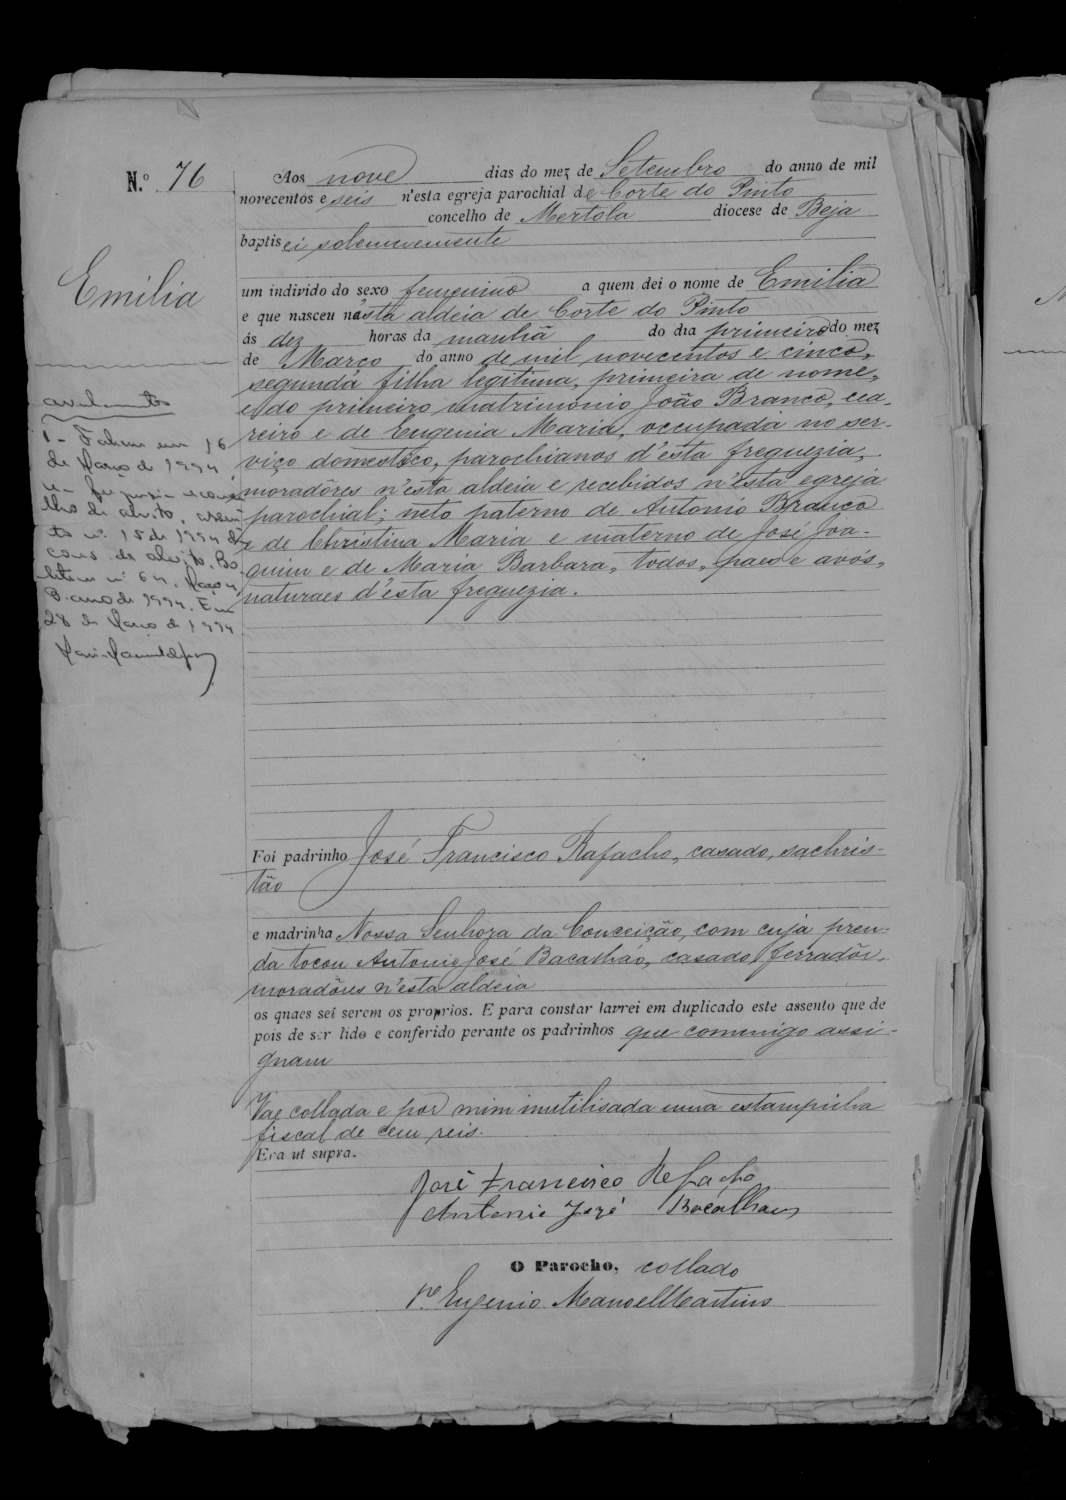 N.º 76
Aos nove dias do mez de Setembro do anno de mil
novecentos e seis n'esta egreja parochial de Corte do Pinto
concelho de Mertola diocese de Beja
baptisei solemnemente
Emilia
um individo do sexo femenino a quem dei o nome de Emilia
e que nasceu n'esta aldeia de Corte do Pinto
ás dez horas da manhã do dia primeiro do mez
de Março do anno de mil novecentos e cinco,
segunda filha legitima, primeira de nome,
e do primeiro matrimonio João Branco, cea-
reiro e de Eugenia Maria, occupada no ser-
viço domestico, parochianos d'esta freguezia,
moradôres n'esta aldeia e recebidos n'esta egreja
parochial; neto paterno de Antonio Branco
e de Christina Maria e materno de José Joa-
quim e de Maria Barbara, todos, paes e avós,
naturaes d'esta freguezia.
averbamentos
1 - Faleceu em 16
de Março de 1994
na freguesia e conce
lho de Alvito, assen
to nº 15 de 1994 da
cons. de Alvito. Bo
letim nº 64, Março
3. ano de 1994. Em
28 de Março de 1994
Foi padrinho José Francisco Rafacho, casado, sachris-
tão
e madrinha Nossa Senhora da Conceição, com cuja pren-
da tocou Antonio José Bacalháo, casado, ferradôr,
moradôres n'esta aldeia
os quaes sei serem os proprios. E para constar lavrei em duplicado este assento que de
pois de ser lido e conferido perante os padrinhos que commigo assi-
gnam
Vae collada e por mim inutilisada uma estampilha
fiscal de cem reis.
Era ut supra.
José Francisco Refacho
Antonio José Bacalhau
O Parocho, collado
P.e Eugenio Manoel Martins